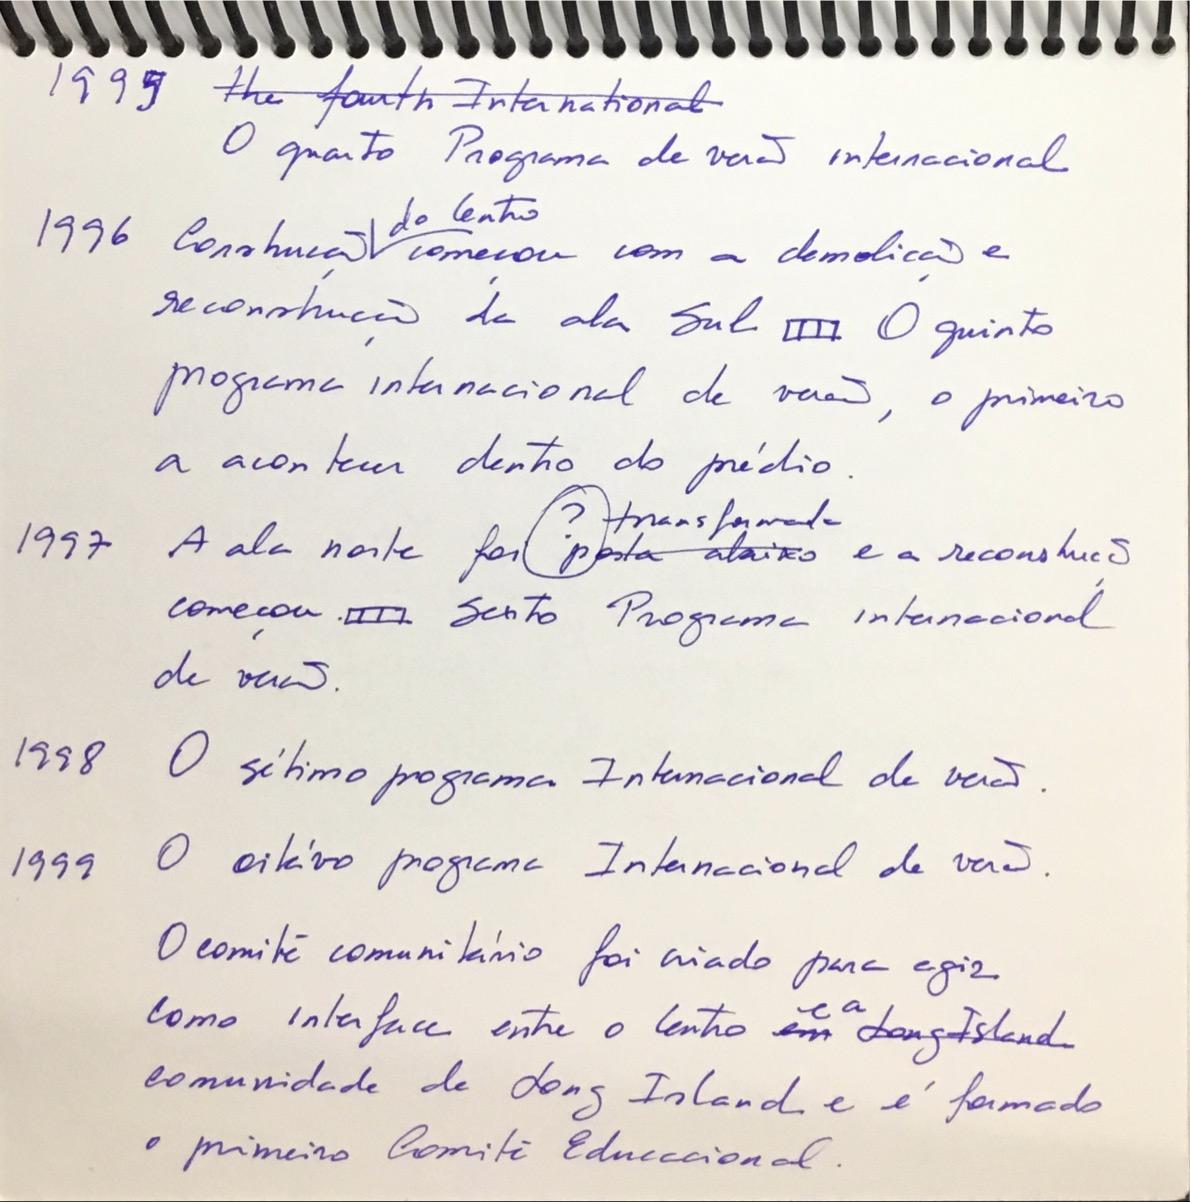 1995 the fourth International
O quarto Programa de verão internacional
1996 Construção do Centro começou com a demolição e
reconstrução da ala Sul O quinto
programa internacional de verão, o primeiro
a acontecer dentro do prédio.
1997 A ala norte foi ? transformada posta abaixo e a reconstrução
começou. Sexto Programa internacional
de verão.
1998 O sétimo programa Internacional de verão.
1999 O oitávo programa Internacional de verão.
O comitê comunitário foi criado para agir
como interface entre o Centro em e a Long Island
comunidade de Long Island e é formado
o primeiro Comitê Educacional.